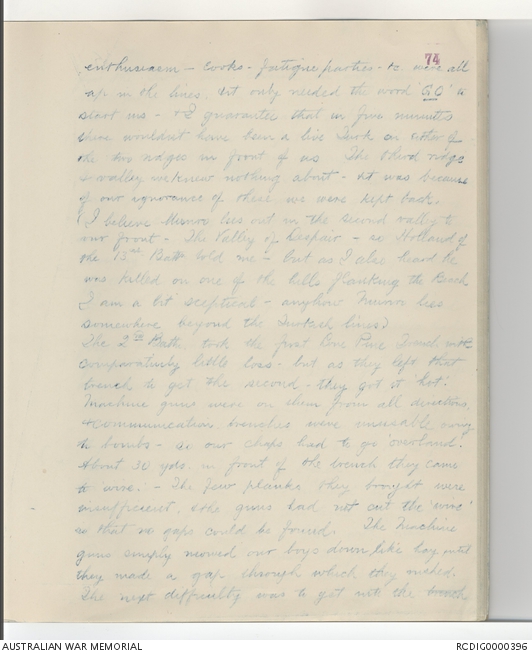 74
enthusiasm - Cooks - fatigue parties - &c were all
up in the lines. It only needed the word 'GO' to
start us - & I guarantee that in five minutes
there wouldn't have been a live Turk on either of
the two ridges in front of us. The third ridge
& valley we knew nothing about - it was because
of our ignorance of these, we were kept back.
(I believe Munro lies out in the second valley to
our front - The Valley of Despair - so Holland of
the 13th Batt told me - but as I also heard he
was killed on one of the hills flanking the Beach
I am a bit sceptical - anyhow Munro lies
somewhere beyond the Turkish lines.)
The 2nd Battn. took the first Lone Pine Trench with
comparatively little loss - but as they left that
trench to get the second - they got it hot.
Machine guns were on them from all directions,
& communication trenches were unusable owing
to bombs - so our chaps had to go 'overland'.
About 30 yds. in front of the trench they came
to 'wire'. - The few planks they brought were
insufficient, & the guns had not cut the 'wire'
so that no gaps could be found. The Machine
guns simply mowed our boys down like hay until
they made a gap through which they rushed.
The next difficulty was to get into the trench
AUSTRALIAN WAR MEMORIAL
RCDIG0000396